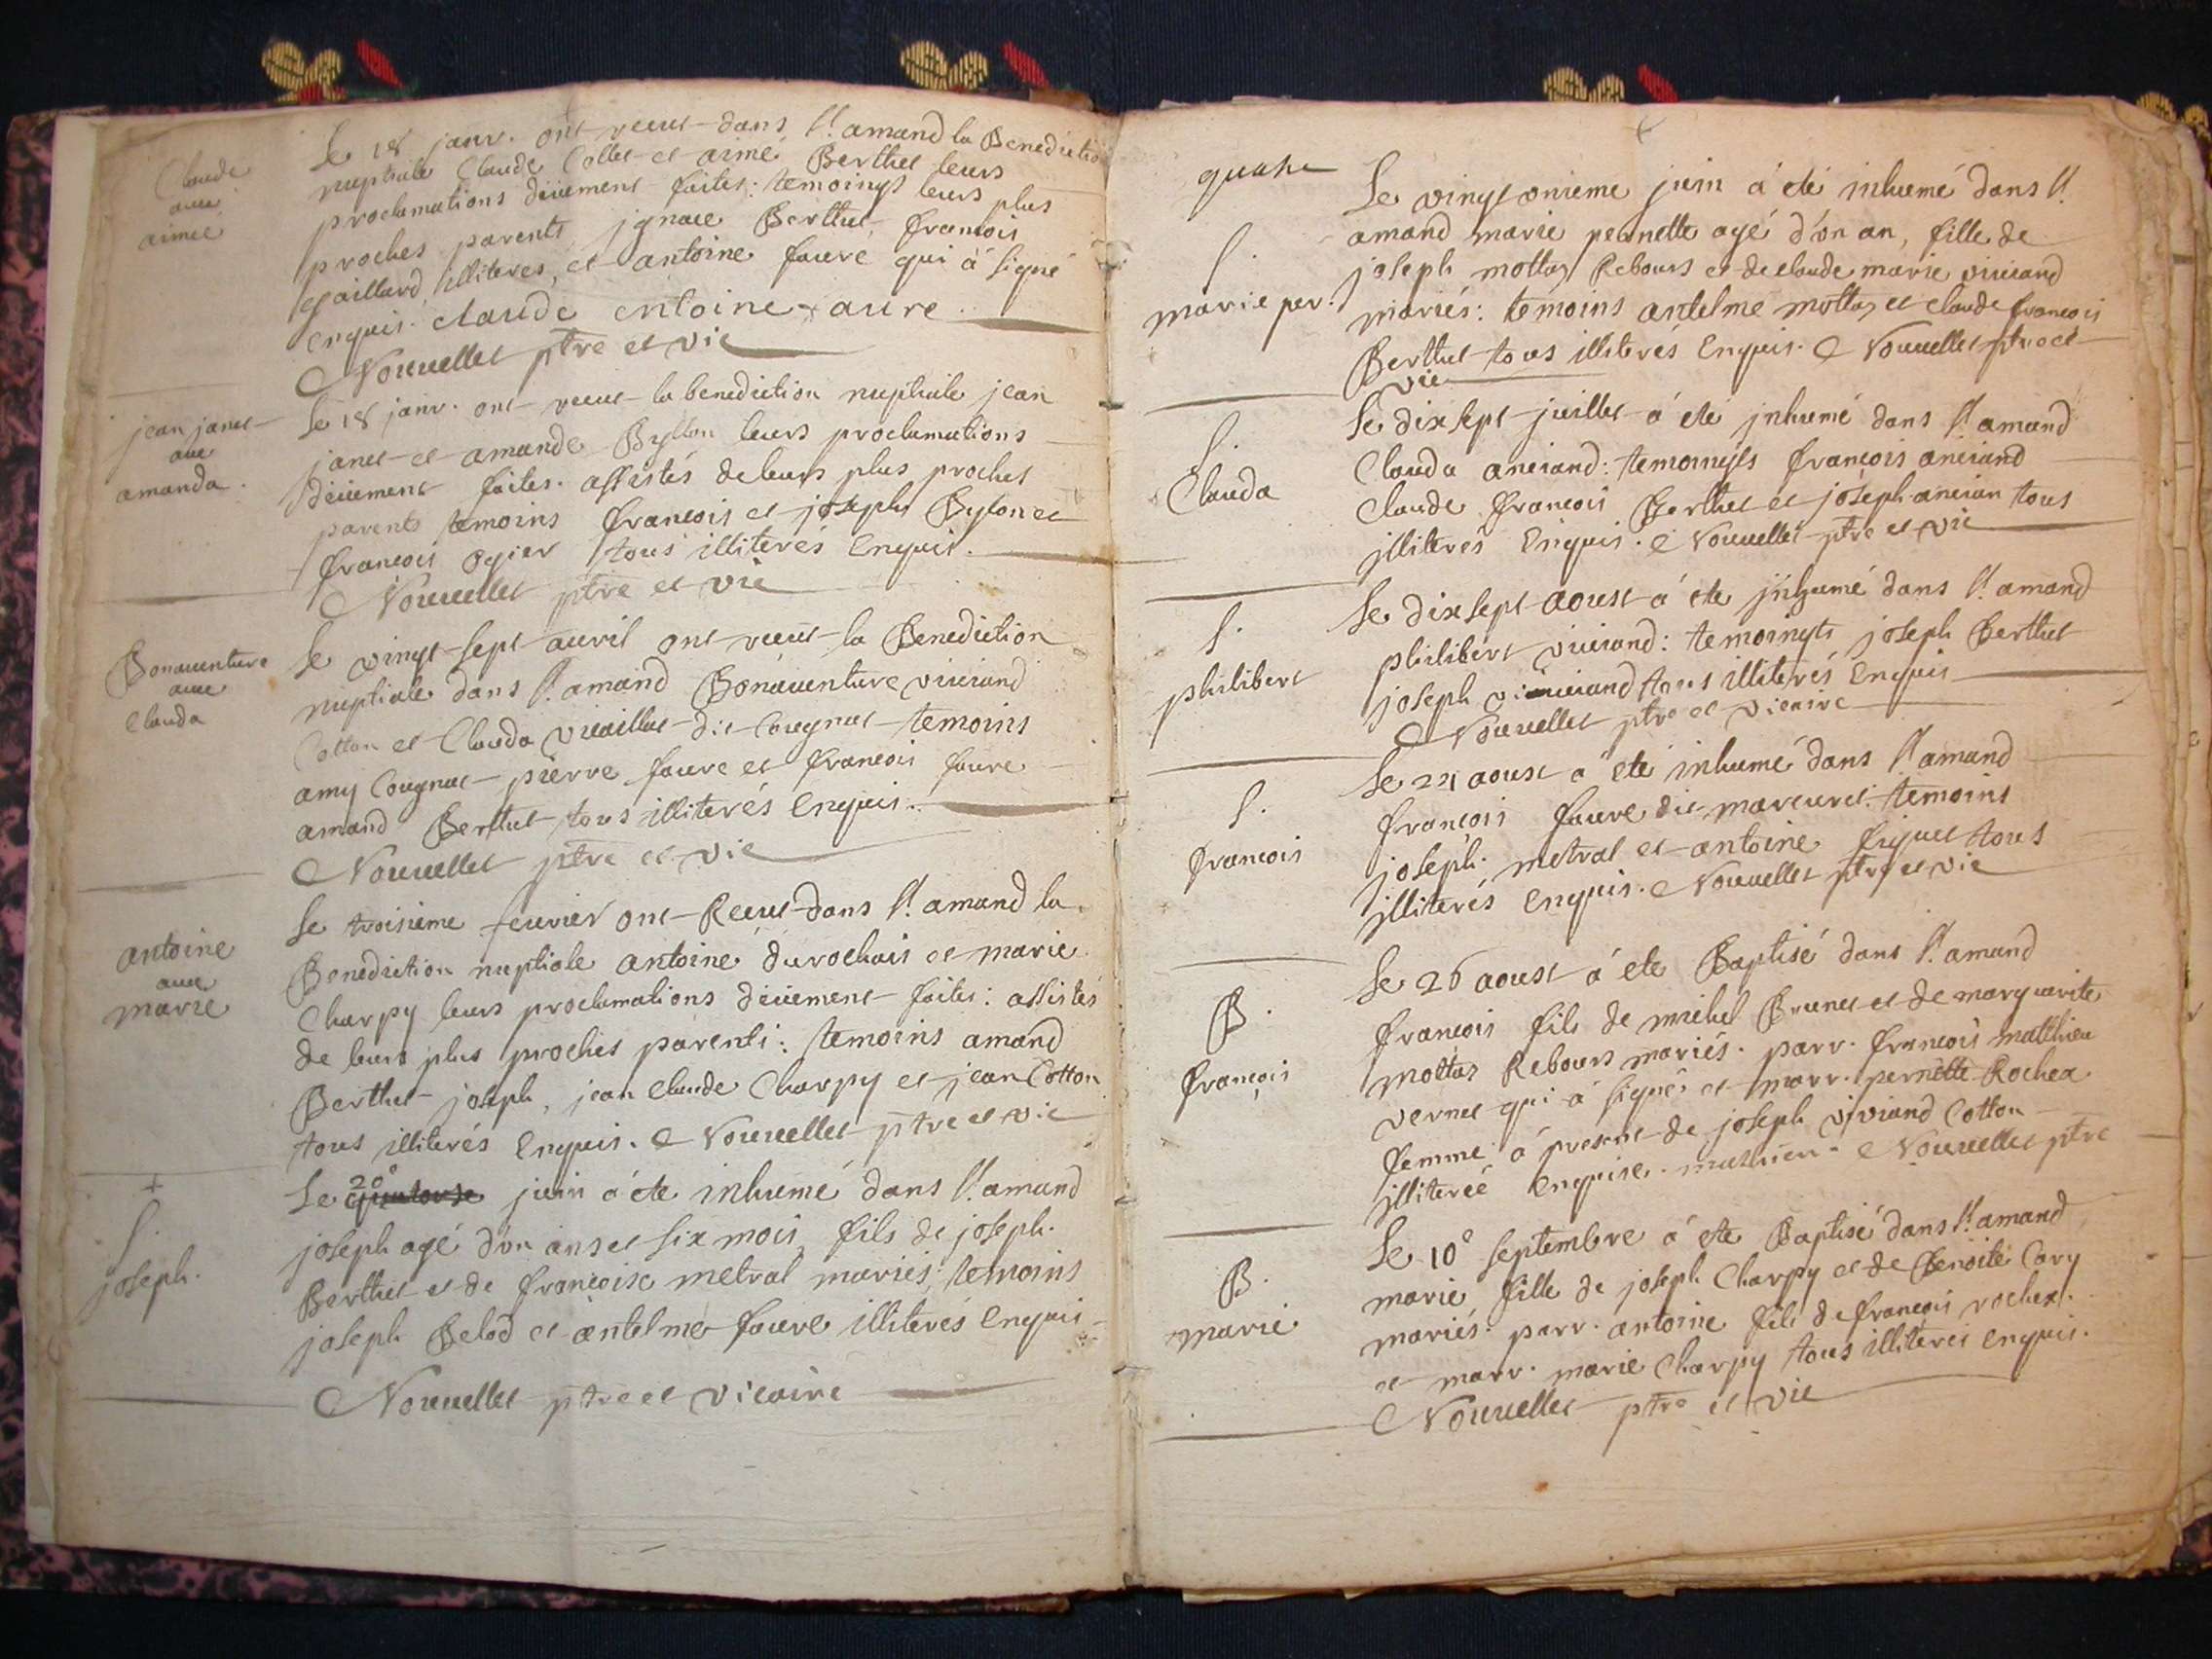 Claude
avec
aimée
Le 18 janv. ont receut dans St. amand la Benediction
nuptiale Claude Collet et aimé Berthet leurs
proclamations düement faites: temoingts leurs plus
proches parents jgnace Berthet, francois
gaillard, illiteres, et antoine favre qui a signé
enquis. claude entoine favre
Nouuellet ptre et vic
jean janet
avec
amanda.
Le 18 janv. ont receut la benediction nuptiale jean
janet et amande Byllon leurs proclamations
düement faites. assistés de leurs plus proches
parents temoins francois et joseph Bylon et
francois ogier tous illiterés Enquis.
Nouuellet ptre et vic
Bonauenture
avec
Clauda
Le vingt sept auril ont receut la Benediction
nuptiale dans St. amand Bonauenture viuiand
Cotton et Clauda dit Cougnet temoins
amy Cougnet pierre faure et francois faure
amand Berthet tous illiterés Enquis.
Nouuellet ptre et vic
antoine
avec
marie
Le troisieme feurier ont Receut dans St. amand la
Benediction nuptiale antoine durochais et marie
Charpy leurs proclamations düement faites: assistés
de leurs plus proches parents: temoins amand
Berthet joseph, jean Claude Charpy et jean Cotton
tous illiterés Enquis. Nouuellet ptre et vic
+
S.
joseph.
Le 20e quatorse juin a éte inhumé dans St. amand
joseph agé d'on ans et six mois, fils de joseph
Berthet et de francoise metral mariés; temoins
joseph Belod et antelme faure illiterés enquis
Nouuellet ptre et vicaire
S.
marie per.
Le vingt onieme juin a eté inhumé dans St.
amand marie pernette agé d'on an, fille de
joseph mottaz Rebours et de claude marie viuiand
mariés: temoins antelme mottaz et claude francois
Berthet tous illiterés Enquis. Nouuellet ptre et
vic
S.
Clauda
Le dix sept juillet a éte jnhumé dans St. amand
Clauda aneiand: temoingts francois aneiand
Claude francois Berthet et joseph aneian tous
jlliterés Enquis. Nouuellet ptre et vic
S.
philibert
Le dix sept aoust a éte jnhumé dans St. amand
philibert viuiand: temoingts joseph Berthet
joseph viuiand tous illiterés Enquis
Nouuellet ptre et vicaire
S.
francois
Le 24 aoust a éte inhumé dans St. amand
francois faure dit temoins
joseph metral et antoine tous
jlliterés Enquis. Nouuellet ptre et vic
B.
françois
Le 26 aoust a éte Baptisé dans St. amand
francois fils de michel Brunet et de marguerite
mottaz Rebours mariés. parr. francois matthieu
vernet qui a signé; et marr. pernette Rochex
femme a present de joseph viviand Cotton
jlliterée enquise. mathieu. Nouuellet ptre
B.
marie
Le 10e septembre a éte Baptisé dans St. amand
marie fille de joseph Charpy et de Benoite Cary
mariés. parr. antoine fils de françois rochex.
et marr. marie Charpy tous illiterés enquis.
Nouuellet ptre et vic